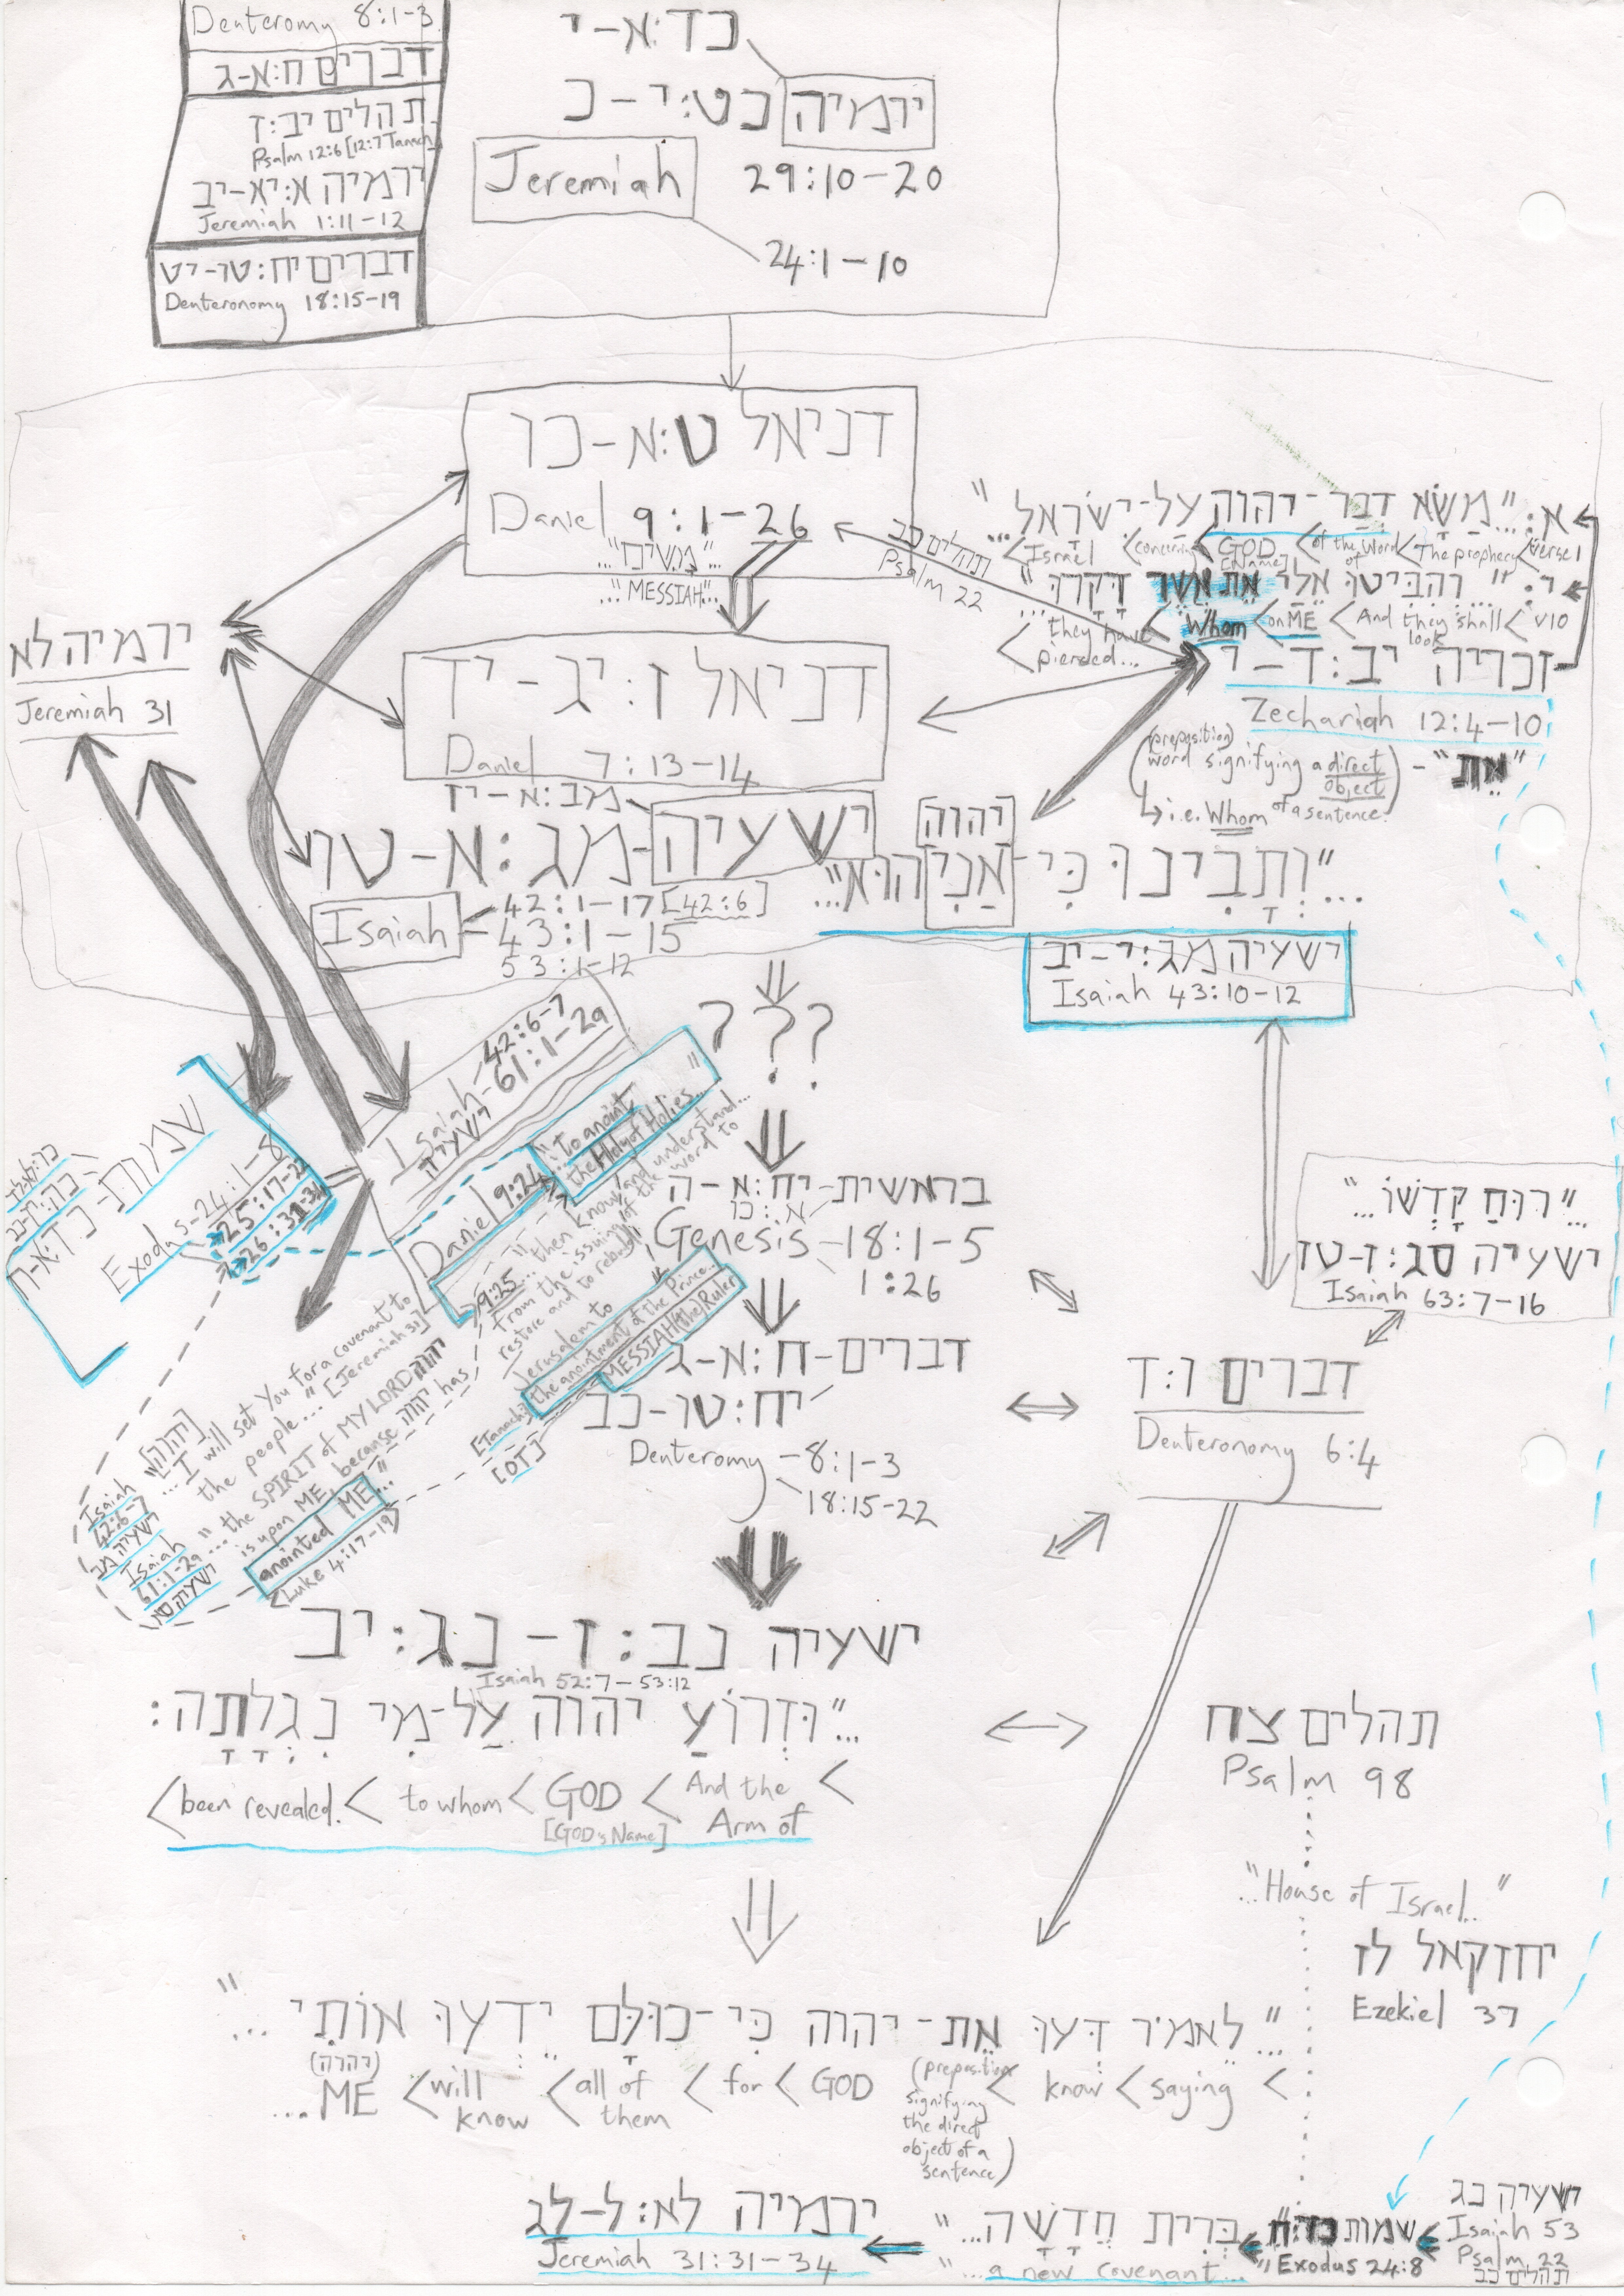 Deuteromy 8:1-3
דברים ח:א-ג
תהלים יב:ז
Psalm 12:6 [12:7 Tanach]
ירמיה א:יא-יב
Jeremiah 1:11-12
דברים יח:טו-יט
Deuteronomy 18:15-19
כד:א-י
ירמיה כט:י-כ
Jeremiah 29:10-20
24:1-10
דניאל ט:א-כו
Daniel 9:1-26
"...מָשִׁיחַ..."
"...MESSIAH..."
תהלים כב
Psalm 22
א:..."מַשָּׂא דְבַר-יהוה עַל-יִשְׂרָאֵל..."
...<Israel <concerning <GOD <of the Word <The prophecy <Verse 1
[Name] of
י: "וְהִבִּיטוּ אֵלַי אֵת אֲשֶׁר דָּקָרוּ..."
<they have <Whom <on ME <And they shall <v10
pierced... look
זכריה יב:ד-י
Zechariah 12:4-10
"אֵת" -
(preposition)
(word signifying a direct object)
↳ i.e. Whom of a sentence.
ירמיה לא
Jeremiah 31
דניאל ז:יג-יד
Daniel 7:13-14
מב:א-יז
ישעיה-מג:א-טו
Isaiah - 42:1-17 [42:6]
43:1-15
53:1-12
יהוה
..."וְתָבִינוּ כִּי-אֲנִי הוּא"...
ישעיה מג:י-יב
Isaiah 43:10-12
???
Isaiah - 42:6-7
61:1-2a
ישעיה
Daniel 9:24 "...to anoint
the Holy of Holies..."
9:25 "...then know and understand...
From the issuing of the word to
restore and to rebuild
Jerusalem to
the anointment of the Prince...
MESSIAH (the) Ruler
[Tanach]
[OT]
שמות-כד:א-ח
כה:יז-כב
כו:לא-לד
Exodus-24:1-8
25:17-22
26:31-34
[יהוה]
Isaiah 42:6-7
ישעיה מב
"...I will set You for a covenant to
the people..." [Jeremiah 31]
Isaiah 61:1-2a
ישעיה סא
"...the SPIRIT of MY LORD יהוה
is upon ME, because יהוה has
anointed ME..."
<Luke 4:17-19>
בראשית-יח:א-ה
א:כו
Genesis-18:1-5
1:26
"...רוּחַ קָדְשׁוֹ..."
ישעיה סג:ז-טז
Isaiah 63:7-16
דברים-ח:א-ג
יח:טו-כב
Deuteromy -8:1-3
18:15-22
דברים ו:ד
Deuteronomy 6:4
ישעיה נב:ז-נג:יב
Isaiah 52:7-53:12
..."וּזְרוֹעַ יהוה עַל-מִי נִגְלָתָה:
<been revealed. < to whom < GOD < And the <
[GOD's Name] Arm of
תהלים צח
Psalm 98
"...House of Israel..."
יחזקאל לז
Ezekiel 37
..."לֵאמֹר דְּעוּ אֶת-יהוה כִּי-כוּלָּם יֵדְעוּ אוֹתִי..."
(יהוה)
...ME <will <all of <for <GOD (preposition < know < saying <
know them signifying
the direct
object of a
sentence)
ירמיה לא:ל-לג
Jeremiah 31:31-34
"בְּרִית חֲדָשָׁה..."
"...a new covenant..."
שמות כד:ח
Exodus 24:8
ישעיה נג
Isaiah 53
Psalm 22
תהלים כב